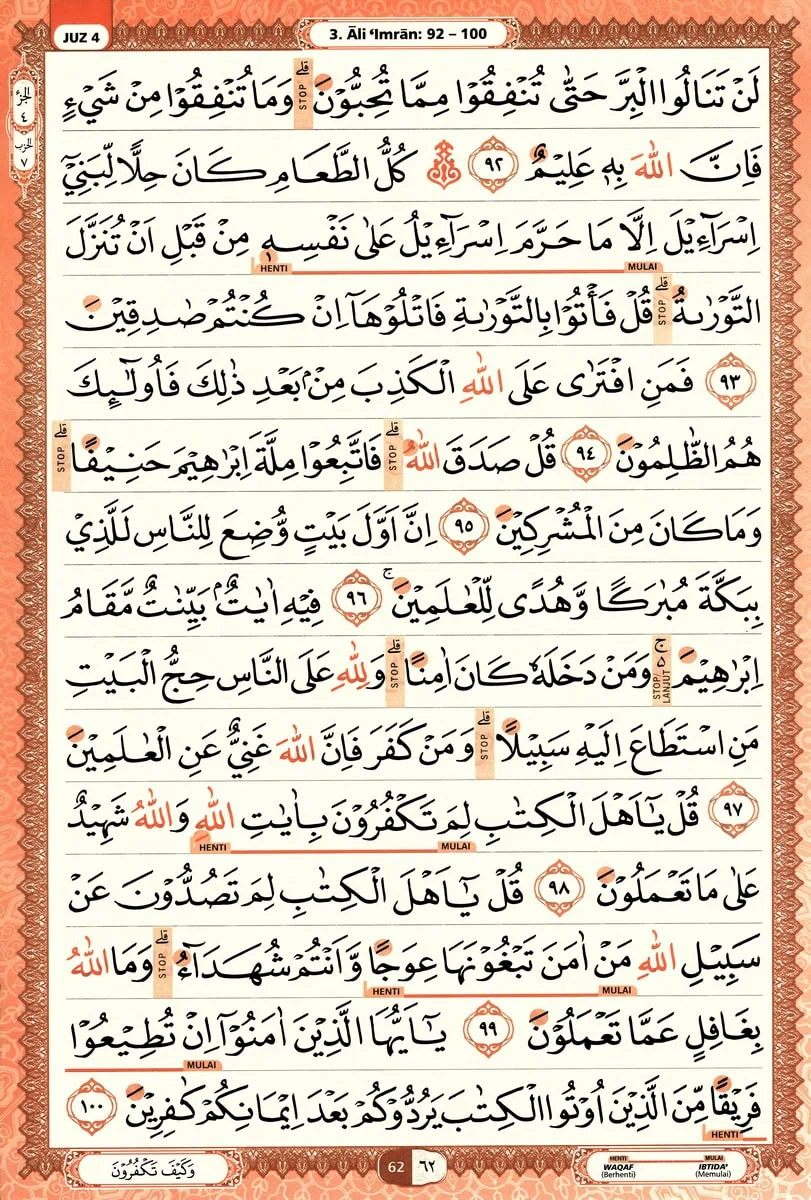 JUZ 4
3. Āli ‘Imrān: 92 – 100
الجزء
٤
الحزب
٧
لَنْ تَنَالُوا الْبِرَّ حَتّٰى تُنْفِقُوْا مِمَّا تُحِبُّوْنَ ۗ STOP وَمَا تُنْفِقُوْا مِنْ شَيْءٍ
فَاِنَّ اللّٰهَ بِهٖ عَلِيْمٌ ٩٢ كُلُّ الطَّعَامِ كَانَ حِلًّا لِّبَنِيْٓ
اِسْرَاۤءِيْلَ اِلَّا مَا حَرَّمَ اِسْرَاۤءِيْلُ عَلٰى نَفْسِهٖ مِنْ قَبْلِ اَنْ تُنَزَّلَ
HENTI MULAI
التَّوْرٰىةُ ۗ STOP قُلْ فَأْتُوْا بِالتَّوْرٰىةِ فَاتْلُوْهَآ اِنْ كُنْتُمْ صٰدِقِيْنَ
٩٣ فَمَنِ افْتَرٰى عَلَى اللّٰهِ الْكَذِبَ مِنْۢ بَعْدِ ذٰلِكَ فَاُولٰۤىِٕكَ
هُمُ الظّٰلِمُوْنَ ٩٤ قُلْ صَدَقَ اللّٰهُ ۗ STOP فَاتَّبِعُوْا مِلَّةَ اِبْرٰهِيْمَ حَنِيْفًا ۗ STOP
وَمَا كَانَ مِنَ الْمُشْرِكِيْنَ ٩٥ اِنَّ اَوَّلَ بَيْتٍ وُّضِعَ لِلنَّاسِ لَلَّذِيْ
بِبَكَّةَ مُبٰرَكًا وَّهُدًى لِّلْعٰلَمِيْنَ ۚ ٩٦ فِيْهِ اٰيٰتٌۢ بَيِّنٰتٌ مَّقَامُ
اِبْرٰهِيْمَ ۚ STOP/LANJUT وَمَنْ دَخَلَهٗ كَانَ اٰمِنًا ۗ STOP وَلِلّٰهِ عَلَى النَّاسِ حِجُّ الْبَيْتِ
مَنِ اسْتَطَاعَ اِلَيْهِ سَبِيْلًا ۗ STOP وَمَنْ كَفَرَ فَاِنَّ اللّٰهَ غَنِيٌّ عَنِ الْعٰلَمِيْنَ
٩٧ قُلْ يٰٓاَهْلَ الْكِتٰبِ لِمَ تَكْفُرُوْنَ بِاٰيٰتِ اللّٰهِ وَاللّٰهُ شَهِيْدٌ
HENTI MULAI
عَلٰى مَا تَعْمَلُوْنَ ٩٨ قُلْ يٰٓاَهْلَ الْكِتٰبِ لِمَ تَصُدُّوْنَ عَنْ
سَبِيْلِ اللّٰهِ مَنْ اٰمَنَ تَبْغُوْنَهَا عِوَجًا وَّاَنْتُمْ شُهَدَاۤءُ ۗ STOP وَمَا اللّٰهُ
HENTI MULAI
بِغَافِلٍ عَمَّا تَعْمَلُوْنَ ٩٩ يٰٓاَيُّهَا الَّذِيْنَ اٰمَنُوْٓا اِنْ تُطِيْعُوْا
MULAI
فَرِيْقًا مِّنَ الَّذِيْنَ اُوْتُوا الْكِتٰبَ يَرُدُّوْكُمْ بَعْدَ اِيْمَانِكُمْ كٰفِرِيْنَ ١٠٠
HENTI
وَكَيْفَ تَكْفُرُوْنَ
62 ٦٢
HENTI MULAI
WAQAF IBTIDA'
(Berhenti) (Memulai)